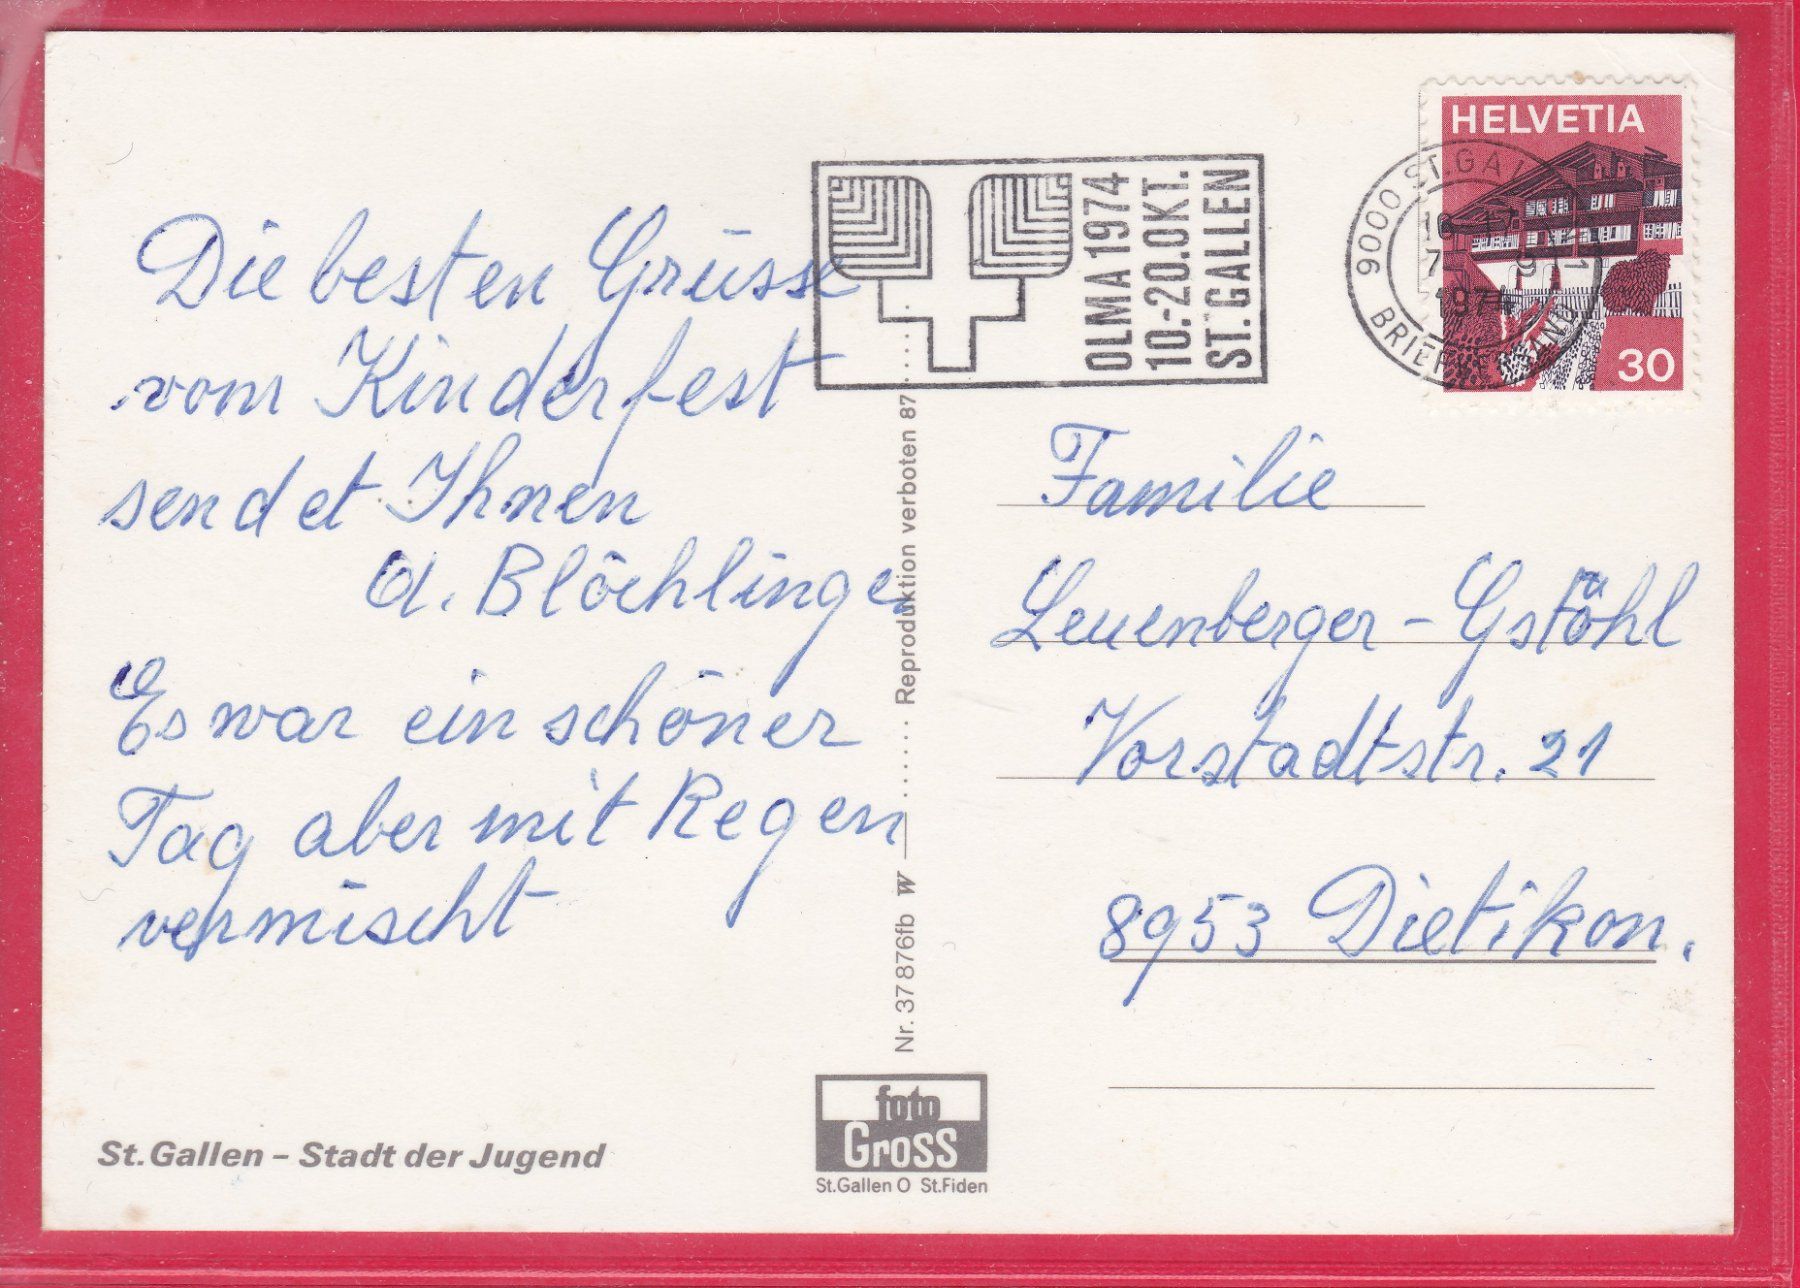 Die besten Grüsse
vom Kinderfest
sendet Ihnen
A. Blöchlinger
Es war ein schöner
Tag aber mit Regen
vermischt
St.Gallen – Stadt der Jugend
OLMA 1974
10.-20.OKT.
ST.GALLEN
HELVETIA
30
9000 ST.GALLEN 1
BRIEFVERSAND
1974
Familie
Leuenberger - Gstöhl
Vorstadtstr. 21
8953 Dietikon.
Nr. 37876fb W Reproduktion verboten 87
foto
Gross
St.Gallen O St.Fiden